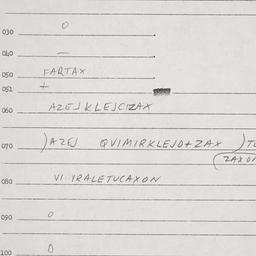 030 0
040 —
050 FARTAX
051 +
060 AZEJ KLEJCIZAX
070 )AZEJ QVIMIRKLEJO+ZAX )TU
(ZAXO
080 VI IRALETUCAXON
090 0
100 0